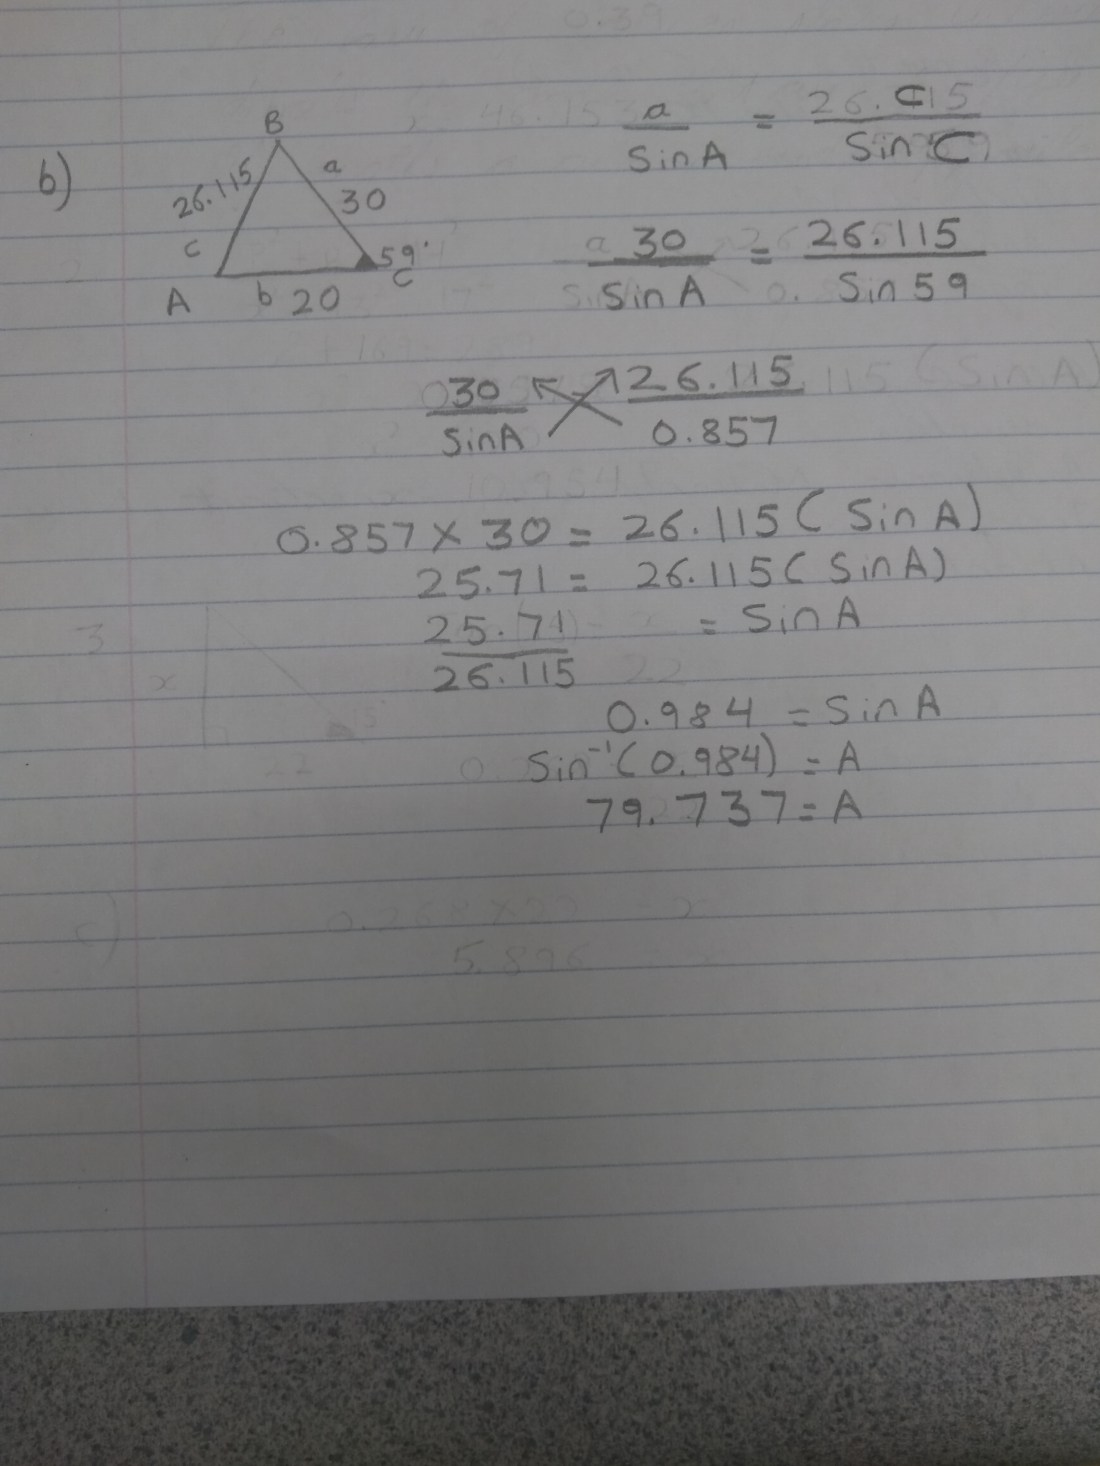 b)
B
26.115
a
30
c
59°
C
A
b 20
a/Sin A = c/Sin C
30/Sin A = 26.115/Sin 59
30/Sin A 26.115/0.857
0.857 × 30 = 26.115 ( Sin A )
25.71 = 26.115 ( Sin A )
25.71/26.115 = Sin A
0.984 = Sin A
Sin⁻¹ ( 0.984 ) = A
79.737 = A